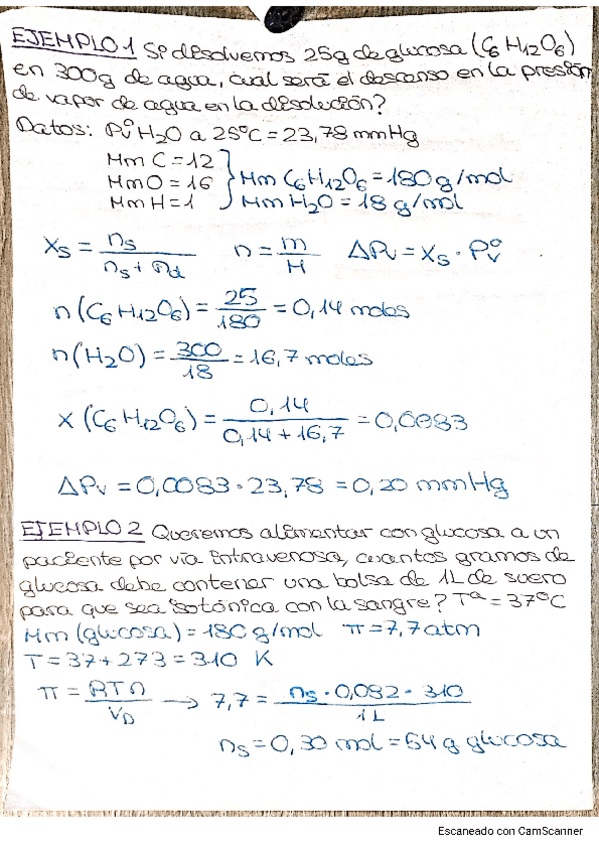 EJEMPLO 1 Si disolvemos 25g de glucosa (C6H12O6)
en 300g de agua, cual será el descenso en la presión
de vapor de agua en la disolución?
Datos: Pv° H2O a 25°C = 23,78 mmHg
Mm C = 12
Mm O = 16 } Mm C6H12O6 = 180 g/mol
Mm H = 1 Mm H2O = 18 g/mol
Xs = ns / (ns + nd) n = m / M ΔPv = Xs · Pv°
n (C6H12O6) = 25 / 180 = 0,14 moles
n (H2O) = 300 / 18 = 16,7 moles
X (C6H12O6) = 0,14 / (0,14 + 16,7) = 0,0083
ΔPv = 0,0083 · 23,78 = 0,20 mmHg
EJEMPLO 2 Queremos alimentar con glucosa a un
paciente por vía intravenosa, cuantos gramos de
glucosa debe contener una bolsa de 1L de suero
para que sea isotónica con la sangre? Tª = 37°C
Mm (glucosa) = 180 g/mol π = 7,7 atm
T = 37 + 273 = 310 K
π = RTn / VD → 7,7 = ns · 0,082 · 310 / 1L
ns = 0,30 mol = 54 g glucosa
Escaneado con CamScanner